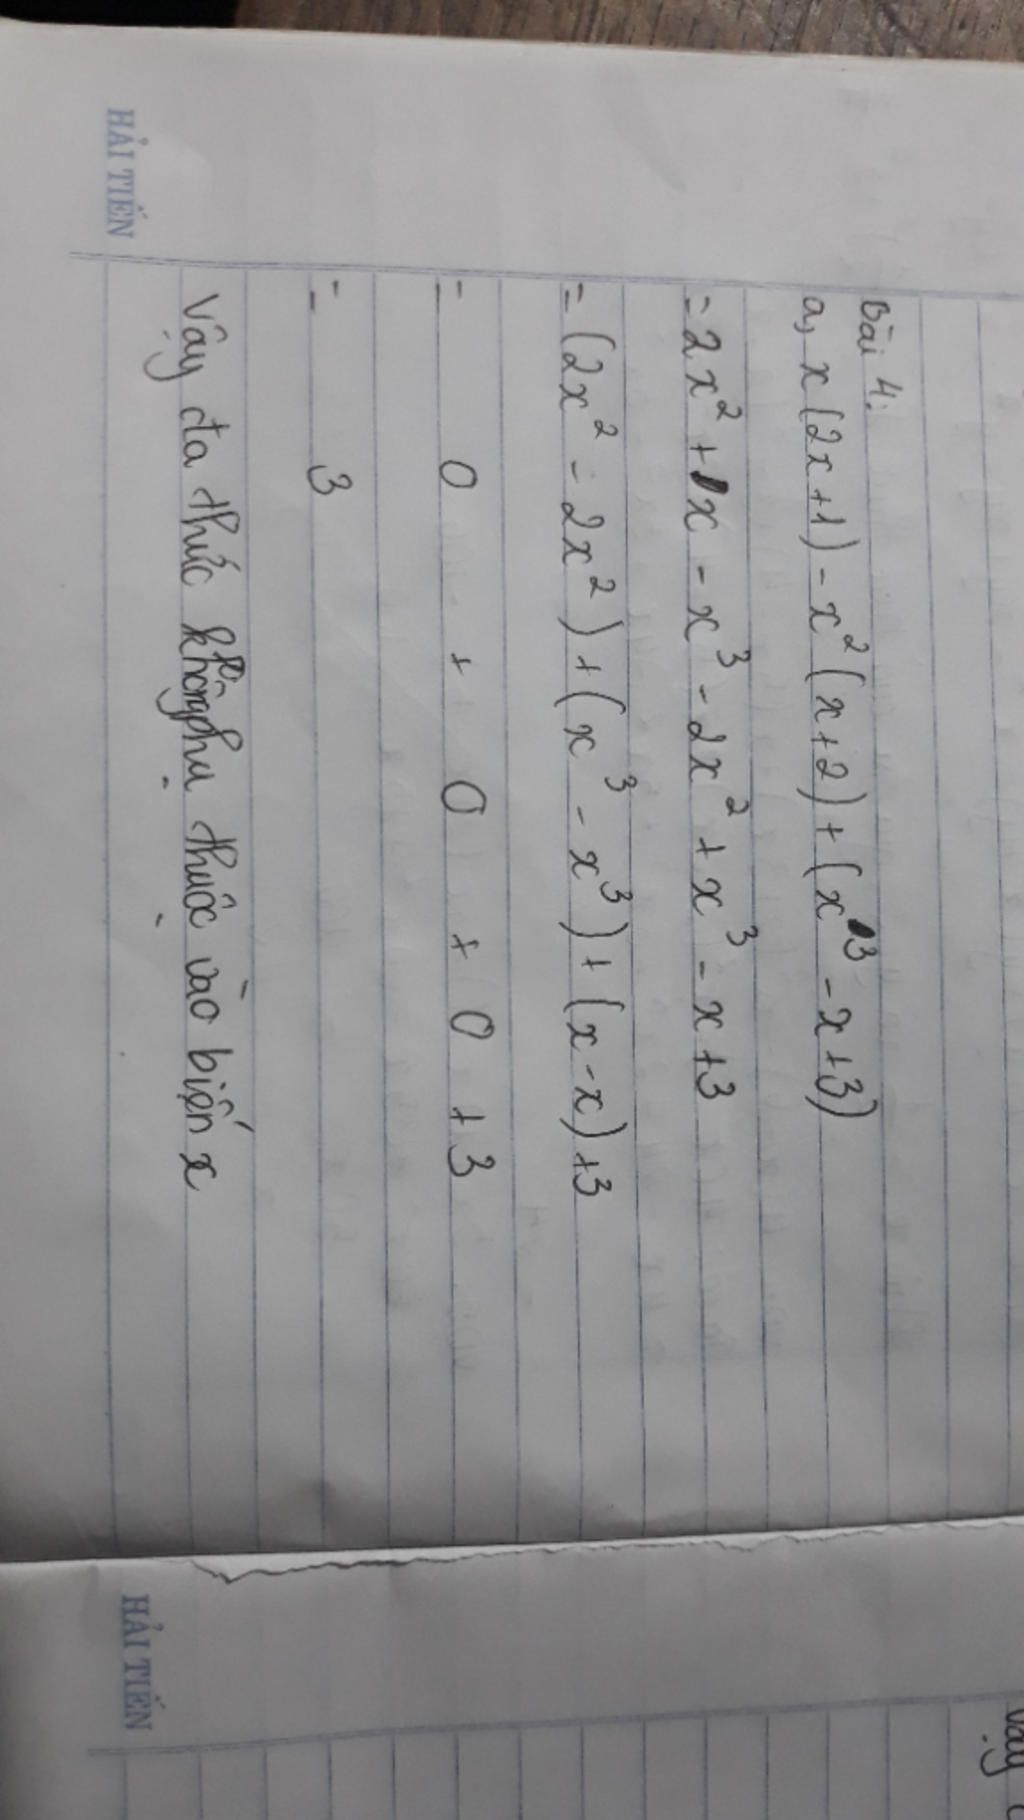 Bài 4:
a, x(2x+1) - x²(x+2) + (x³ - x+3)
= 2x² + x - x³ - 2x² + x³ - x+3
= (2x² - 2x²) + (x³ - x³) + (x-x) +3
= 0 + 0 + 0 +3
= 3
Vậy đa thức không phụ thuộc vào biến x
HẢI TIẾN
HẢI TIẾN
Vậy